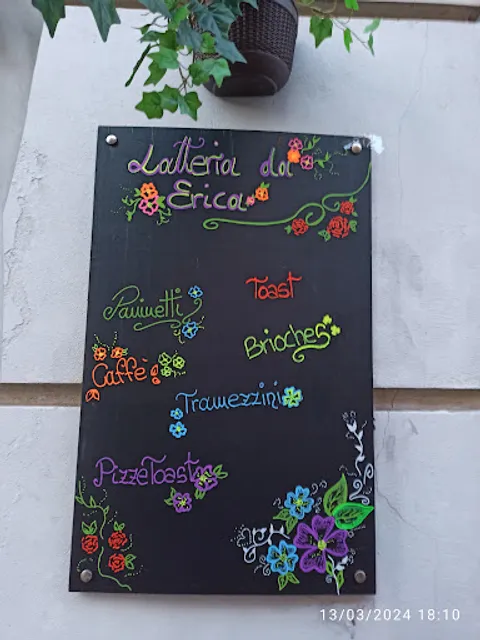 Latteria da
Erica
Paninetti
Toast
Brioches
Caffè
Tramezzini
PizzeToast
13/03/2024 18:10